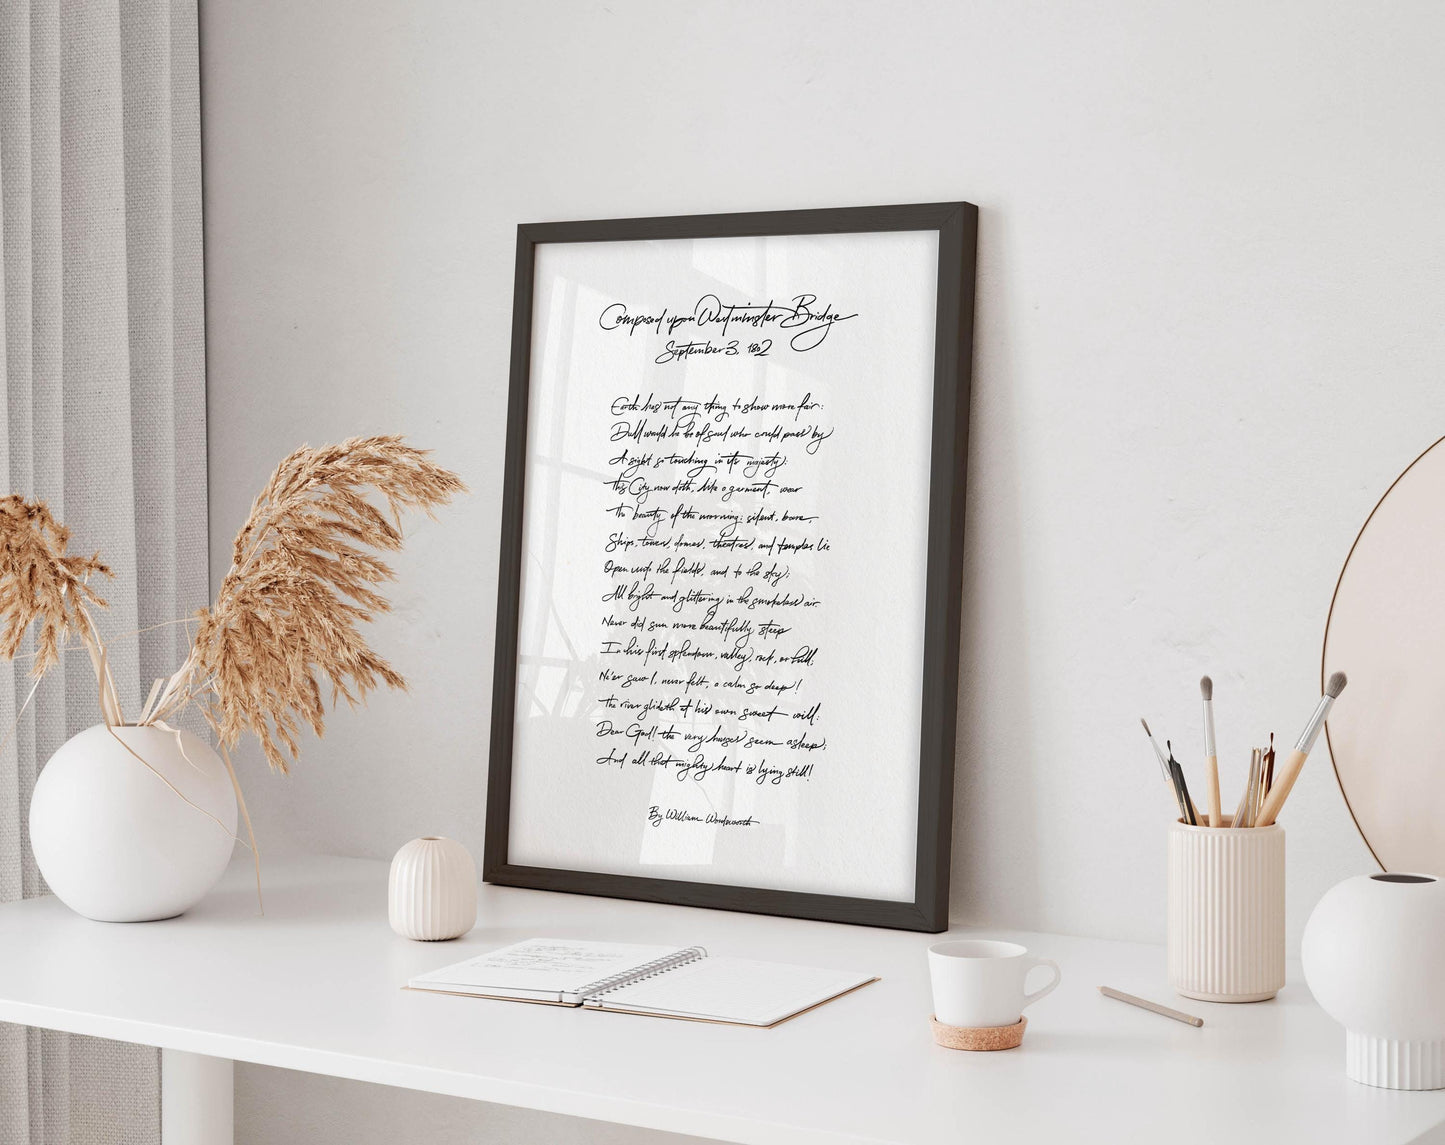 Composed upon Westminster Bridge
September 3, 1802
Earth has not any thing to show more fair:
Dull would he be of soul who could pass by
A sight so touching in its majesty:
This City now doth, like a garment, wear
The beauty of the morning; silent, bare,
Ships, towers, domes, theatres, and temples lie
Open unto the fields, and to the sky;
All bright and glittering in the smokeless air.
Never did sun more beautifully steep
In his first splendour, valley, rock, or hill;
Ne'er saw I, never felt, a calm so deep!
The river glideth at his own sweet will:
Dear God! the very houses seem asleep;
And all that mighty heart is lying still!
By William Wordsworth